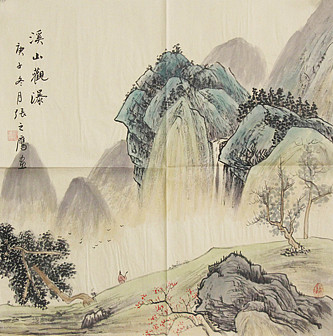 溪山觀瀑
庚子冬月張之